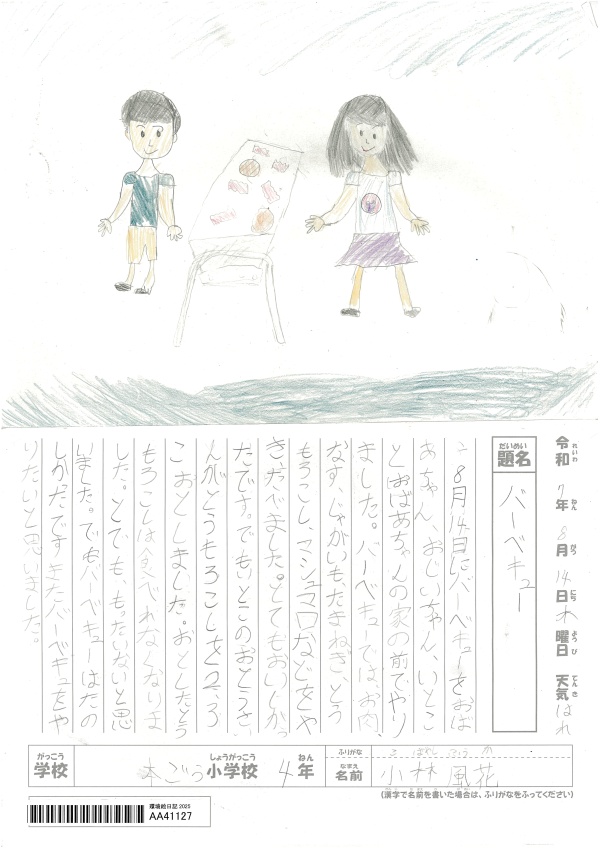 令和7年8月14日木曜日 天気はれ
れいわ ねん がつ にち ようび てんき
だいめい
題名 バーベキュー
8月14日にバーベキューをおば
あちゃん、おじいちゃん、いとこ
とおばあちゃんの家の前でやり
ました。バーベキューでは、お肉、
なす、じゃがいも、たまねぎ、とう
もろこし、マシュマロなどをや
きたべました。とてもおいしかっ
たです。でもいとこのおとうさ
んがとうもろこしを2、3
こおとしました。おとしたとう
もろこしは食べれなくなりま
した。とてでも、もったいないと思
いました。でもバーベキューはたの
しかたです またバーベキュをや
りたいと思いました。
がっこう しょうがっこう ねん ふりがな こばやし ふうか
学校 本ごう小学校 4年 なまえ 名前 小林 風花
(漢字で名前を書いた場合は、ふりがなをふってください)
環境絵日記 2025
AA41127